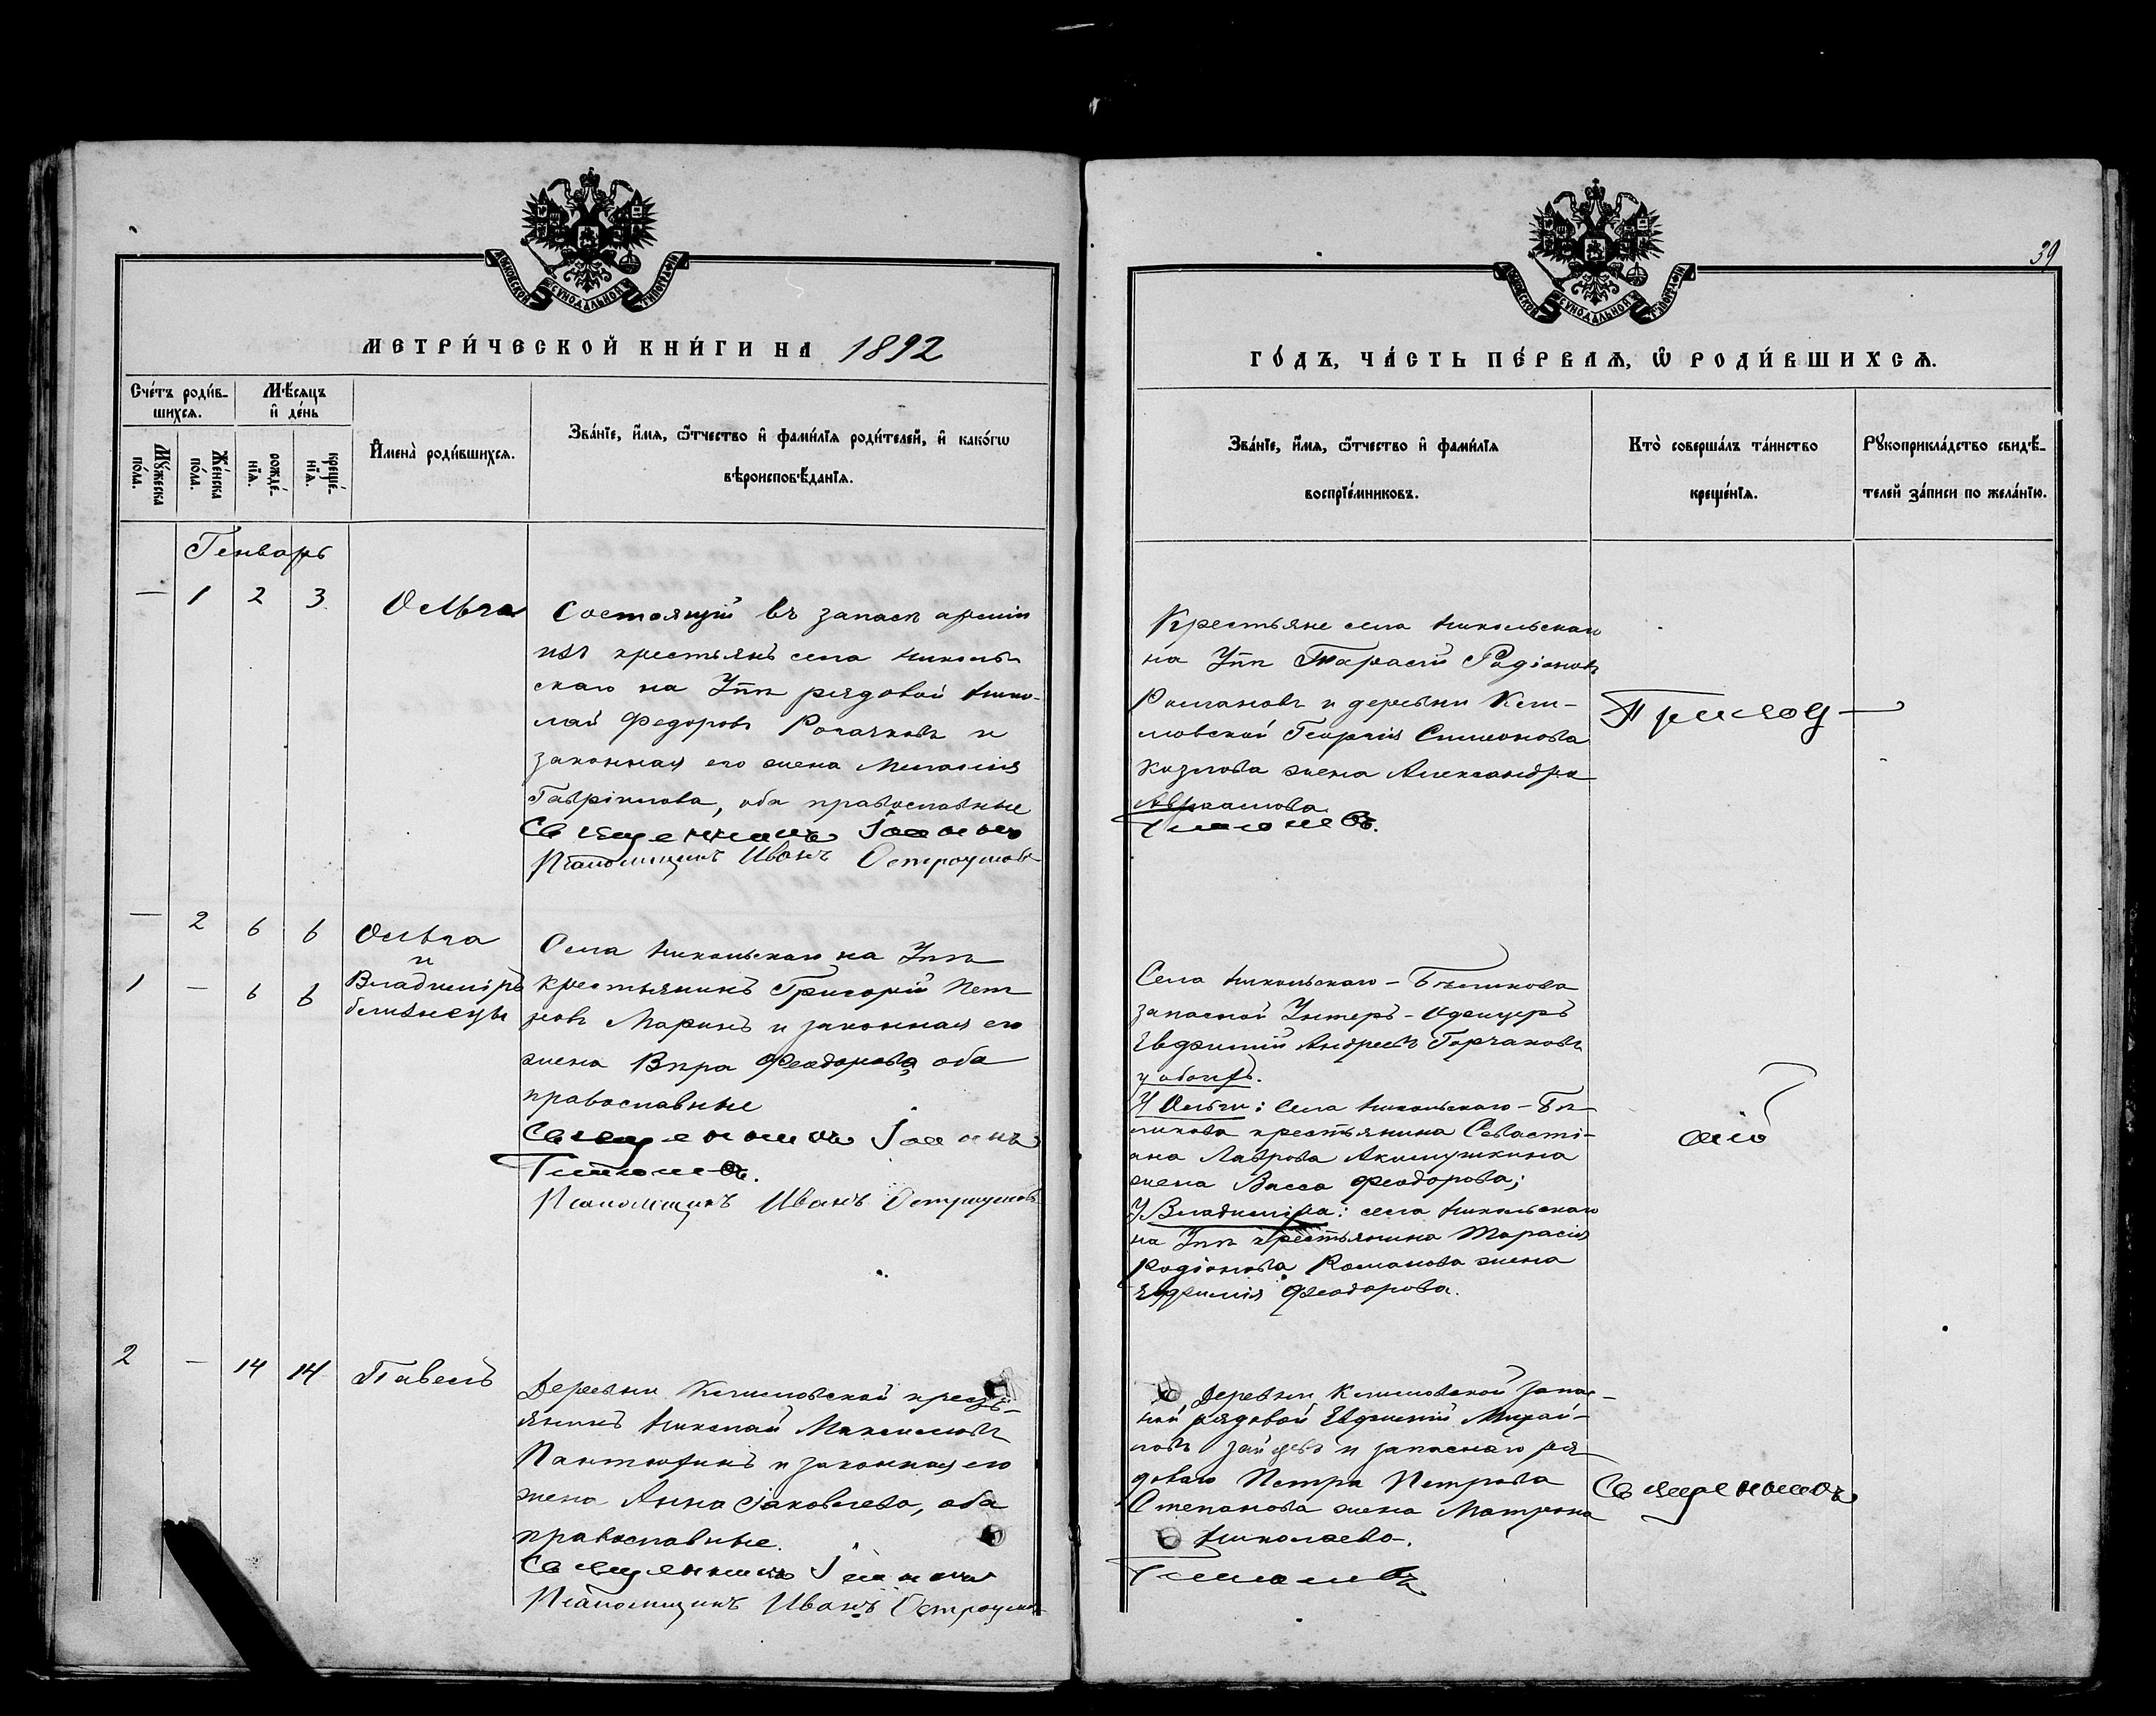 МОСКОВСКОЙ СѴНОДАЛЬНОЙ ТИПОГРАФІИ
МЕТРИ́ЧЕСКОЙ КНИ́ГИ НА 1892
Сче́тъ роди́в-
шихсѧ.
Мѣ́сяцъ
и҆ де́нь
Мꙋ́жеска
по́ла.
Же́нска
по́ла.
рожде́-
нїѧ.
креще́-
нїѧ.
И҆мена̀ роди́вшихсѧ.
Зва́нїе, и҆́мѧ, ѻ҆́тчество и҆ фами́лїѧ роди́телей, и҆ како́гѡ
вѣроисповѣ́данїѧ.
Генварь
— 1 2 3 Ольга
Состоящій въ запасѣ арміи
изъ крестьянъ села Николь
скаго на Упѣ рядовой Нико-
лай Федоровъ Рогачковъ и
законная его жена Меланія
Гавріилова, оба православные
Священникъ Іоаннъ
Псаломщикъ Иванъ Остроумовъ
— 2 6 6 Ольга
и
1 — 6 6 Владиміръ
близнецы
Села Никольскаго на Упѣ
крестьянинъ Григорій Пет
ровъ Маринъ и законная его
жена Вѣра Феодорова оба
православные
Священникъ Іоаннъ
Псаломщикъ Иванъ Остроумовъ
2 — 14 14 Павелъ
Деревни крестъ-
янинъ Николай Максимовъ
Пантюхинъ и законная его
жена Анна Іаковлева, оба
православные.
Священникъ Іоаннъ
Псаломщикъ Иванъ Остроумов
39
МОСКОВСКОЙ СѴНОДАЛЬНОЙ ТИПОГРАФІИ
ГО́ДЪ, ЧА́СТЬ ПЕ́РВАѦ, Ѽ РОДИ́ВШИХСѦ.
Зва́нїе, и҆́мѧ, ѻ҆́тчество и҆ фами́лїѧ
воспрїе́мниковъ.
Кто̀ соверша́лъ та́инство
креще́нїѧ.
Рꙋкоприкла́дство свидѣ́-
телей за́писи по жела́нїю.
Крестьяне села Никольскаго
на Упѣ Тарасій Родіоновъ
Романовъ и деревни
Георгія Симонова
Козлова жена Александра
Аврамова
Приход
Села Никольскаго – Бѣликова
запасной Унтеръ-Офицеръ
Евфимій Андреевъ Горчаковъ
у обоихъ.
У Ольги: села Никольскаго – Бѣ
ликова крестьянина Севасті-
ана Лаврова Акимушкина
жена Васса Феодорова;
У Владиміра: села Никольскаго
на Упѣ крестьянина Тарасія
Родіонова Романова жена
Евфимія Феодорова.
Деревни запас-
ной рядовой Евфимій Михай-
ловъ Зайцевъ и запаснаго ря
доваго Петра Петрова
Степанова жена Матрона
Николаева.
Священникъ